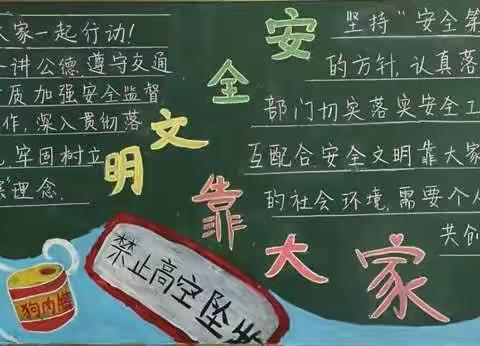 大家一起行动!
讲公德,遵守交通
质加强安全监督
作,深入贯彻落
牢固树立
理念.
文明
安全
靠大家
坚持"安全第
的方针,认真落
部门切实落实安全工
互配合.安全文明靠大家
的社会环境,需要个
共创
禁止高空坠
狗肉